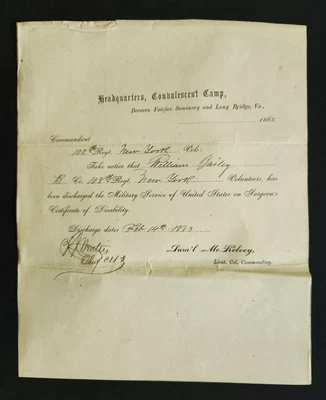 Headquarters, Convalescent Camp,
Between Fairfax Seminary and Long Bridge, Va,
1863,
Commandant
108th Regt. New York Vols:
Take notice that William
B Co. 108th Regt. New York Volunteers, has
been discharged the Military Service of United States on Surgeon's
Certificate of Disability.
Discharge dates Feb 14th 1863
Sam'l McKelvy,
Lieut. Col. Commanding.